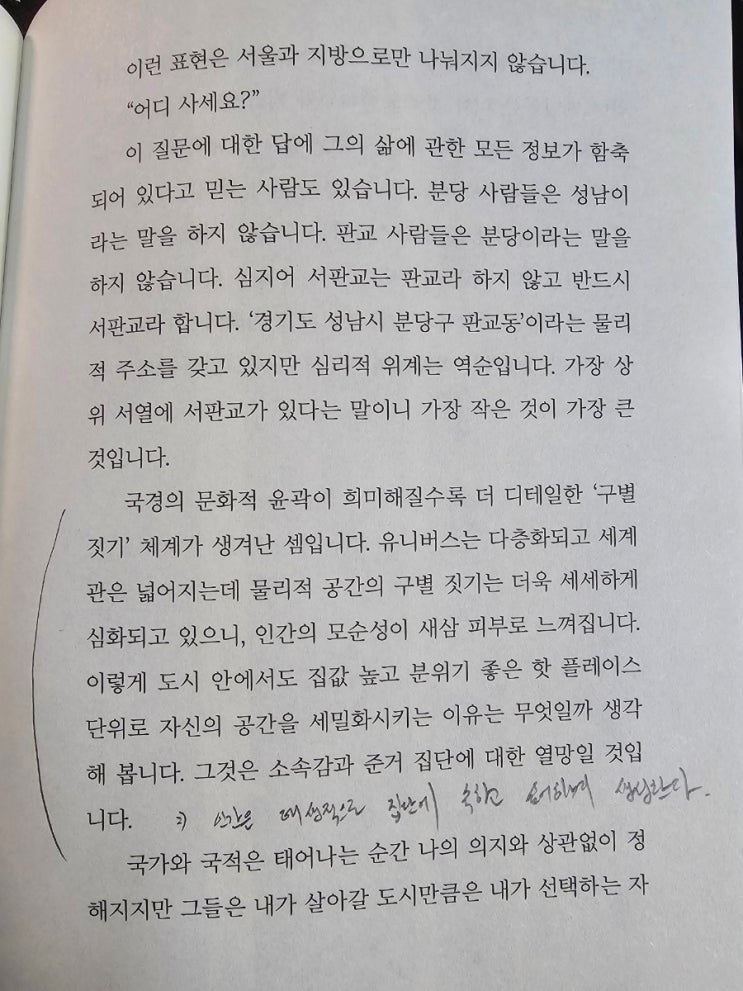 이런 표현은 서울과 지방으로만 나눠지지 않습니다.
“어디 사세요?”
이 질문에 대한 답에 그의 삶에 관한 모든 정보가 함축
되어 있다고 믿는 사람도 있습니다. 분당 사람들은 성남이
라는 말을 하지 않습니다. 판교 사람들은 분당이라는 말을
하지 않습니다. 심지어 서판교는 판교라 하지 않고 반드시
서판교라 합니다. ‘경기도 성남시 분당구 판교동’이라는 물리
적 주소를 갖고 있지만 심리적 위계는 역순입니다. 가장 상
위 서열에 서판교가 있다는 말이니 가장 작은 것이 가장 큰
것입니다.
국경의 문화적 윤곽이 희미해질수록 더 디테일한 ‘구별
짓기’ 체계가 생겨난 셈입니다. 유니버스는 다층화되고 세계
관은 넓어지는데 물리적 공간의 구별 짓기는 더욱 세세하게
심화되고 있으니, 인간의 모순성이 새삼 피부로 느껴집니다.
이렇게 도시 안에서도 집값 높고 분위기 좋은 핫 플레이스
단위로 자신의 공간을 세밀화시키는 이유는 무엇일까 생각
해 봅니다. 그것은 소속감과 준거 집단에 대한 열망일 것입
니다. 인간은 태생적으로 집단에 속하고
국가와 국적은 태어나는 순간 나의 의지와 상관없이 정
해지지만 그들은 내가 살아갈 도시만큼은 내가 선택하는 자